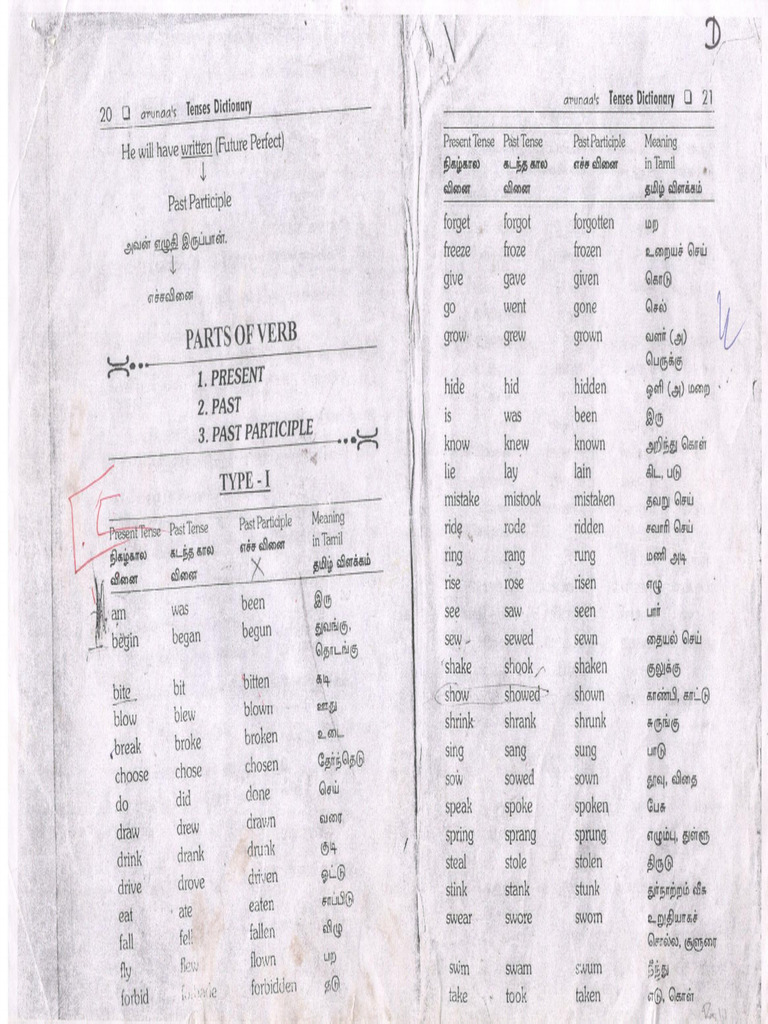 20 ❑ arunaa's Tenses Dictionary
He will have written (Future Perfect)
↓
Past Participle
அவன் எழுதி இருப்பான்.
↓
எச்சவினை
PARTS OF VERB
1. PRESENT
2. PAST
3. PAST PARTICIPLE
TYPE - I
Present Tense Past Tense Past Participle Meaning
நிகழ்கால கடந்த கால எச்ச வினை in Tamil
வினை வினை தமிழ் விளக்கம்
am was been இரு
begin began begun துவங்கு,
தொடங்கு
bite bit bitten கடி
blow blew blown ஊது
break broke broken உடை
choose chose chosen தேர்ந்தெடு
do did done செய்
draw drew drawn வரை
drink drank drunk குடி
drive drove driven ஓட்டு
eat ate eaten சாப்பிடு
fall fell fallen விழு
fly flew flown பற
forbid forbade forbidden தடு
D
arunaa's Tenses Dictionary ❑ 21
Present Tense Past Tense Past Participle Meaning
நிகழ்கால கடந்த கால எச்ச வினை in Tamil
வினை வினை தமிழ் விளக்கம்
forget forgot forgotten மற
freeze froze frozen உறையச் செய்
give gave given கொடு
go went gone செல்
grow grew grown வளர் (அ)
பெருக்கு
hide hid hidden ஒளி (அ) மறை
is was been இரு
know knew known அறிந்து கொள்
lie lay lain கிட, படு
mistake mistook mistaken தவறு செய்
ride rode ridden சவாரி செய்
ring rang rung மணி அடி
rise rose risen எழு
see saw seen பார்
sew sewed sewn தையல் செய்
shake shook shaken குலுக்கு
show showed shown காண்பி, காட்டு
shrink shrank shrunk சுருங்கு
sing sang sung பாடு
sow sowed sown தூவு, விதை
speak spoke spoken பேசு
spring sprang sprung எழும்பு, துள்ளு
steal stole stolen திருடு
stink stank stunk துர்நாற்றம் வீசு
swear swore sworn உறுதியாகச்
சொல்ல, சூளுரை
swim swam swum நீந்து
take took taken எடு, கொள்